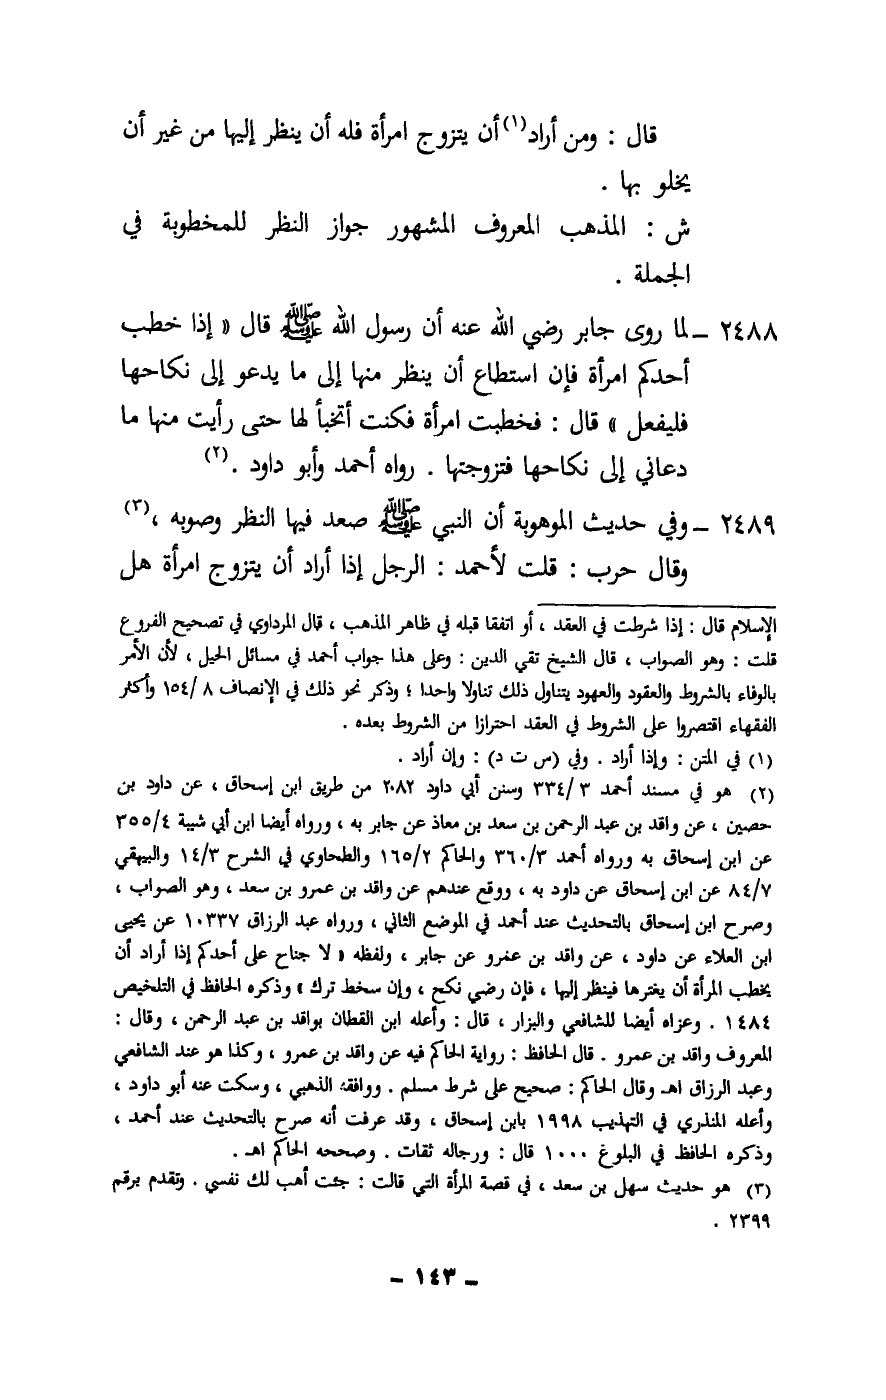 قال : ومن أراد(١) أن يتزوج امرأة فله أن ينظر إليها من غير أن
يخلو بها .
ش : المذهب المعروف المشهور جواز النظر للمخطوبة في
الجملة .
٢٤٨٨ – لما روى جابر رضي الله عنه أن رسول الله ﷺ قال « إذا خطب
أحدكم امرأة فإن استطاع أن ينظر منها إلى ما يدعو إلى نكاحها
فليفعل » قال : فخطبت امرأة فكنت أتخبأ لها حتى رأيت منها ما
دعاني إلى نكاحها فتزوجتها . رواه أحمد وأبو داود .(٢)
٢٤٨٩ – وفي حديث الموهوبة أن النبي ﷺ صعد فيها النظر وصوبه ،(٣)
وقال حرب : قلت لأحمد : الرجل إذا أراد أن يتزوج امرأة هل
الإسلام قال : إذا شرطت في العقد ، أو اتفقا قبله في ظاهر المذهب ، قال المرداوي في تصحيح الفروع
قلت : وهو الصواب ، قال الشيخ تقي الدين : وعلى هذا جواب أحمد في مسائل الحيل ، لأن الأمر
بالوفاء بالشروط والعقود والعهود يتناول ذلك تناولا واحدا ؛ وذكر نحو ذلك في الإنصاف ٨ /١٥٤ وأكثر
الفقهاء اقتصروا على الشروط في العقد احترازا من الشروط بعده .
(١) في المتن : وإذا أراد . وفي (س ت د) : وإن أراد .
(٢) هو في مسند أحمد ٣ /٣٣٤ وسنن أبي داود ٢٠٨٢ من طريق ابن إسحاق ، عن داود بن
حصين ، عن واقد بن عبد الرحمن بن سعد بن معاذ عن جابر به ، ورواه أيضا ابن أبي شيبة ٣٥٥/٤
عن ابن إسحاق به ورواه أحمد ٣٦٠/٣ والحاكم ١٦٥/٢ والطحاوي في الشرح ١٤/٣ والبيهقي
٨٤/٧ عن ابن إسحاق عن داود به ، ووقع عندهم عن واقد بن عمرو بن سعد ، وهو الصواب ،
وصرح ابن إسحاق بالتحديث عند أحمد في الموضع الثاني ، ورواه عبد الرزاق ١٠٣٣٧ عن يحيى
ابن العلاء عن داود ، عن واقد بن عمرو عن جابر ، ولفظه « لا جناح على أحدكم إذا أراد أن
يخطب المرأة أن يغترها فينظر إليها ، فإن رضي نكح ، وإن سخط ترك » وذكره الحافظ في التلخيص
١٤٨٤ . وعزاه أيضا للشافعي والبزار ، قال : وأعله ابن القطان بواقد بن عبد الرحمن ، وقال :
المعروف واقد بن عمرو . قال الحافظ : رواية الحاكم فيه عن واقد بن عمرو ، وكذا هو عند الشافعي
وعبد الرزاق اهـ وقال الحاكم : صحيح على شرط مسلم . ووافقه الذهبي ، وسكت عنه أبو داود ،
وأعله المنذري في التهذيب ١٩٩٨ بابن إسحاق ، وقد عرفت أنه صرح بالتحديث عند أحمد ،
وذكره الحافظ في البلوغ ١٠٠٠ قال : ورجاله ثقات . وصححه الحاكم اهـ .
(٣) هو حديث سهل بن سعد ، في قصة المرأة التي قالت : جئت أهب لك نفسي . وتقدم برقم
٢٣٩٩ .
– ١٤٣ –